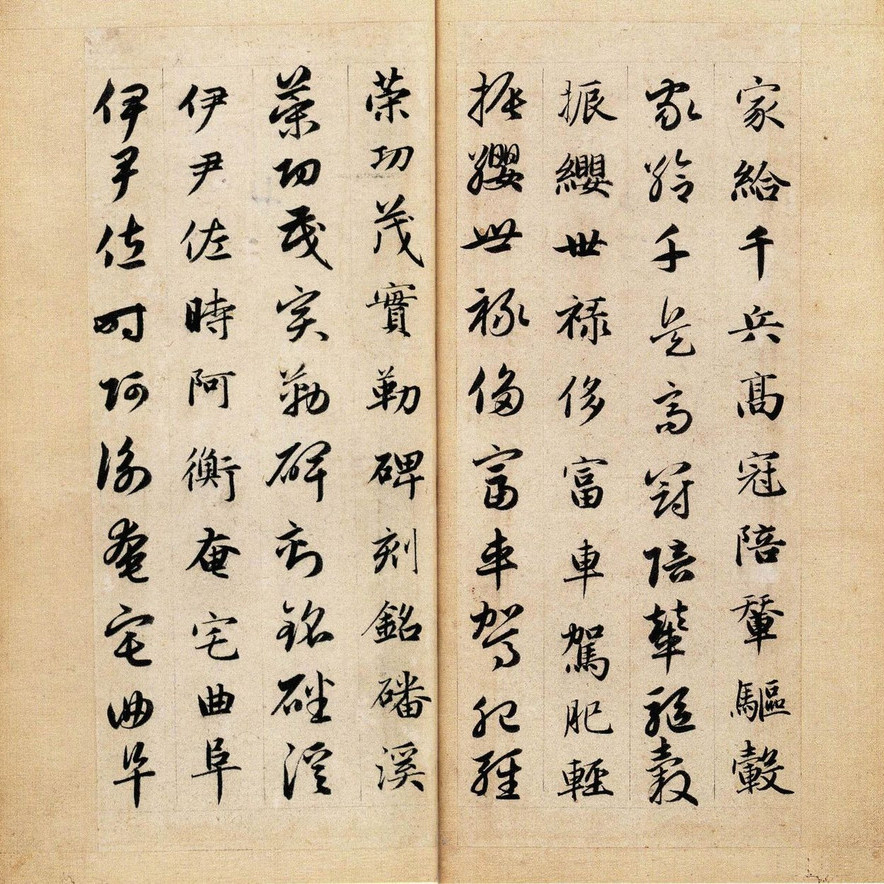 家給千兵髙冠陪輦驅轂
家給千兵高冠陪輦驅轂
振纓世禄侈富車駕肥輕
振纓世禄侈富車駕肥輕
策功茂實勒碑刻銘磻溪
策功茂实勒碑刻銘磻溪
伊尹佐時阿衡奄宅曲阜
伊尹佐時阿衡奄宅曲阜